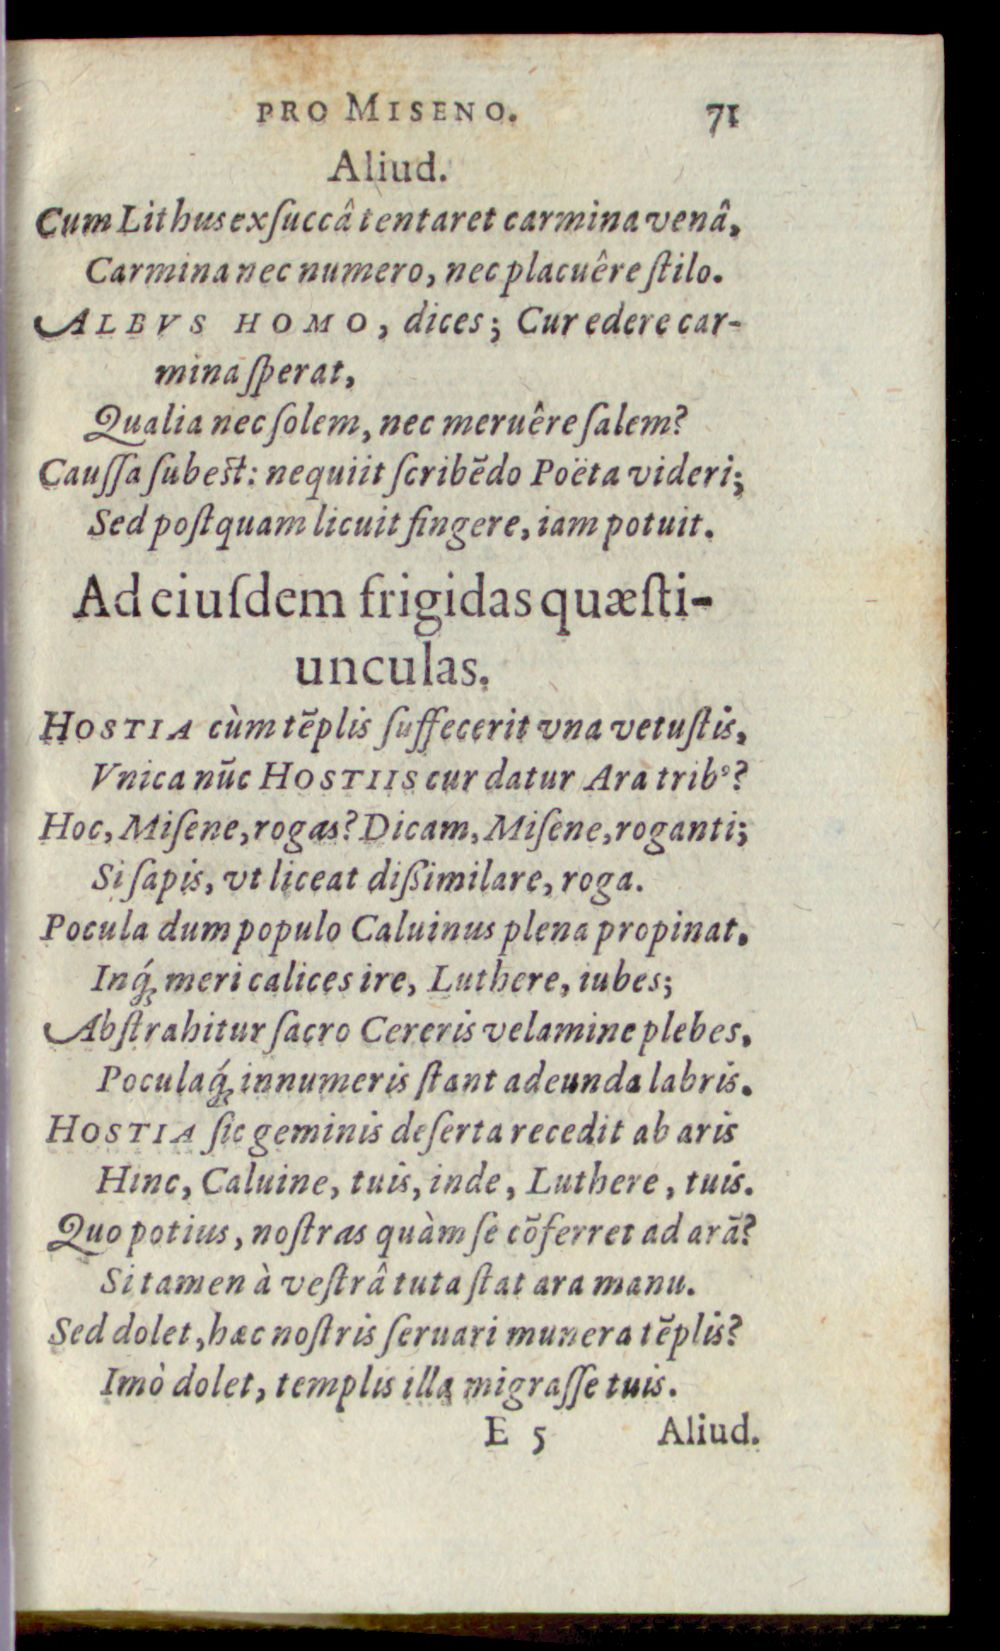 PRO MISENO. 71
Aliud.
Cum Lithus exſuccâ tentaret carmina venâ,
Carmina nec numero, nec placuêre ſtilo.
ALBVS HOMO, dices; Cur edere car-
mina ſperat,
Qualia nec ſolem, nec meruêre ſalem?
Cauſſa ſubeſt: nequiit ſcribẽdo Poëta videri;
Sed poſtquam licuit fingere, iam potuit.
Ad eiuſdem frigidas quæſti-
unculas.
HOSTIA cùm tẽplis ſuffecerit vna vetuſtis,
Vnica nũc HOSTIIS cur datur Ara tribꝰ?
Hoc, Miſene, rogas? Dicam, Miſene, roganti;
Si ſapis, vt liceat dißimilare, roga.
Pocula dum populo Caluinus plena propinat,
Inq́ꝫ meri calices ire, Luthere, iubes;
Abſtrahitur ſacro Cereris velamine plebes,
Poculaq́ꝫ innumeris ſtant adeunda labris.
HOSTIA ſic geminis deſerta recedit ab aris
Hinc, Caluine, tuis, inde, Luthere, tuis.
Quo potius, noſtras quàm ſe cõferret ad arã?
Si tamen à veſtrâ tuta ſtat ara manu.
Sed dolet, hæc noſtris ſeruari munera tẽplis?
Imò dolet, templis illa migraſſe tuis.
E 5 Aliud.